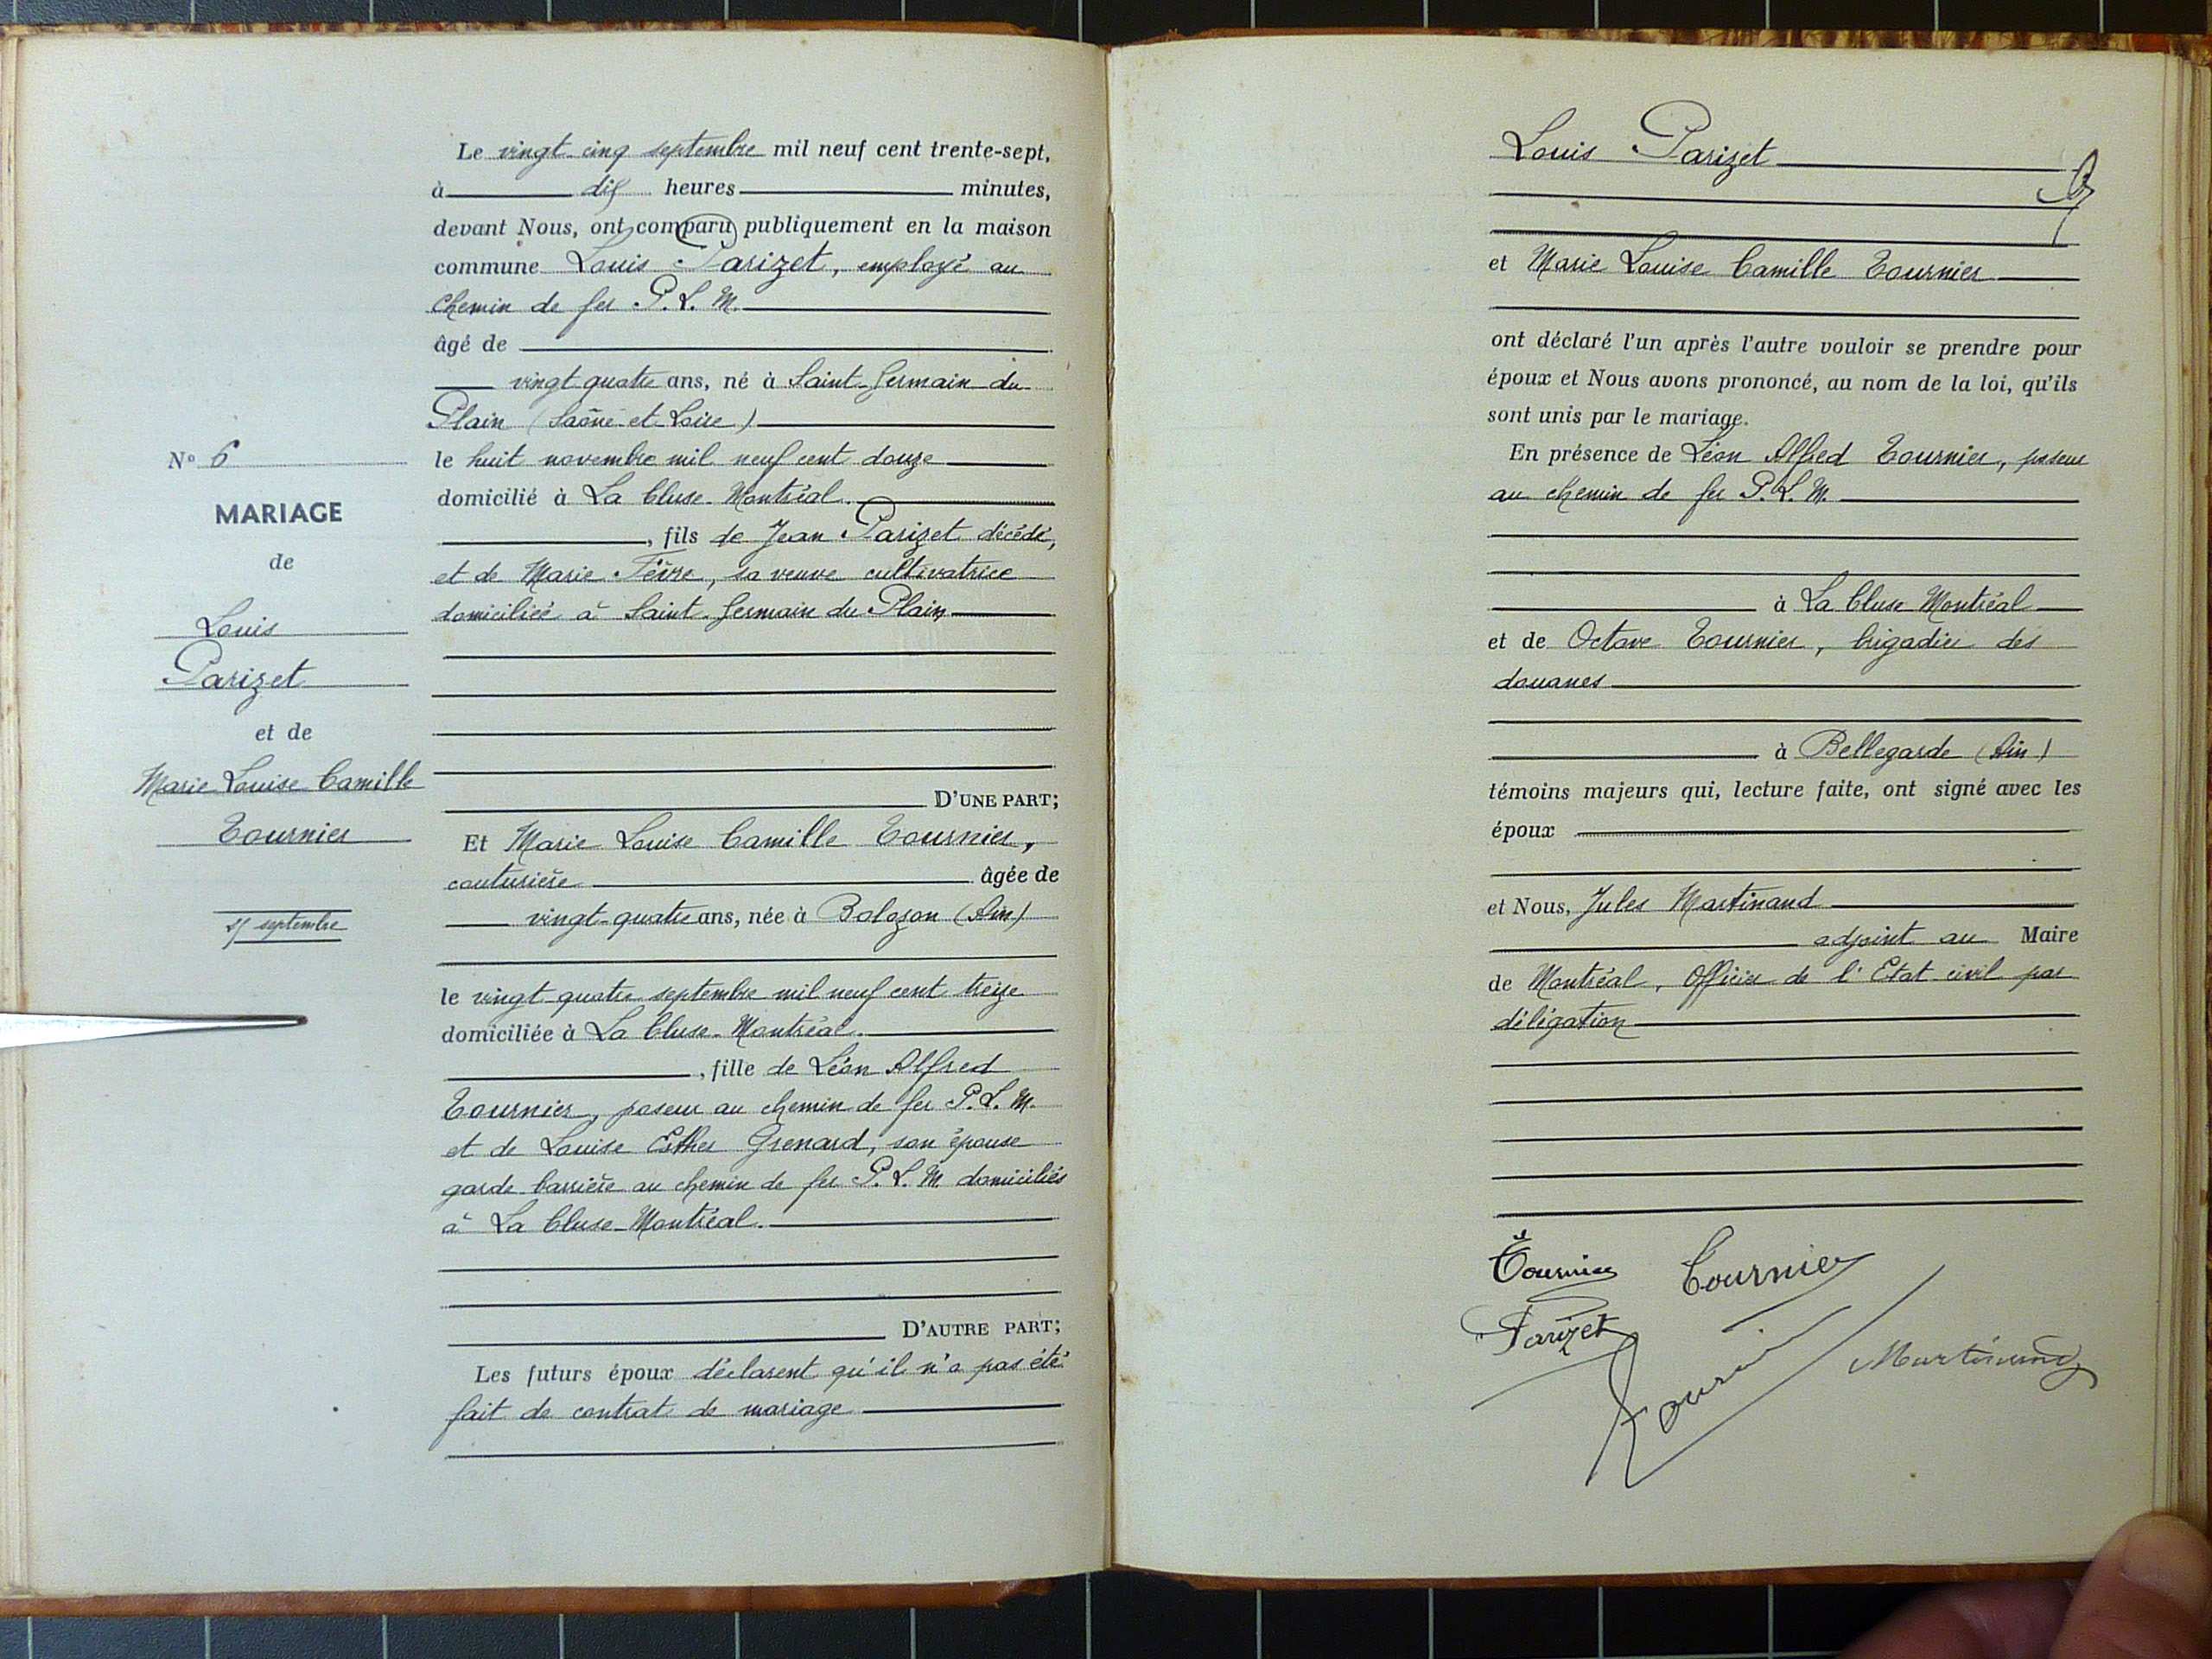 Le vingt-cinq septembre mil neuf cent trente-sept,
à dix heures minutes,
devant Nous, ont comparu publiquement en la maison
commune Louis Parizet, employé au
Chemin de fer P. L. M.
âgé de
vingt quatre ans, né à Saint-Germain du
Plain (Saône et Loire)
le huit novembre mil neuf cent douze
domicilié à La Cluse-Montréal.
, fils de Jean Parizet décédé,
et de Marie Fèvre, sa veuve cultivatrice
domiciliée à Saint-Germain du Plain
D'UNE PART;
Et Marie Louise Camille Tournier,
couturière âgée de
vingt-quatre ans, née à Bolozon (Ain)
le vingt-quatre septembre mil neuf cent treize
domiciliée à La Cluse-Montréal.
, fille de Léon Alfred
Tournier, poseur au chemin de fer P. L. M.
et de Louise Esther Grenard, son épouse
garde barrière au chemin de fer P. L. M. domiciliés
à La Cluse-Montréal.
D'AUTRE PART;
Les futurs époux déclarent qu'il n'a pas été
fait de contrat de mariage
N° 6
MARIAGE
de
Louis
Parizet
et de
Marie Louise Camille
Tournier
septembre
Louis Parizet
et Marie Louise Camille Tournier
ont déclaré l'un après l'autre vouloir se prendre pour
époux et Nous avons prononcé, au nom de la loi, qu'ils
sont unis par le mariage.
En présence de Léon Alfred Tournier, poseur
au chemin de fer P. L. M.
à La Cluse Montréal
et de Octave Tournier, brigadier des
douanes
à Bellegarde (Ain)
témoins majeurs qui, lecture faite, ont signé avec les
époux
et Nous, Jules Martinand
adjoint au Maire
de Montréal, Officier de l'Etat civil par
délégation
Tournier Tournier
Parizet
Tournier Martinand